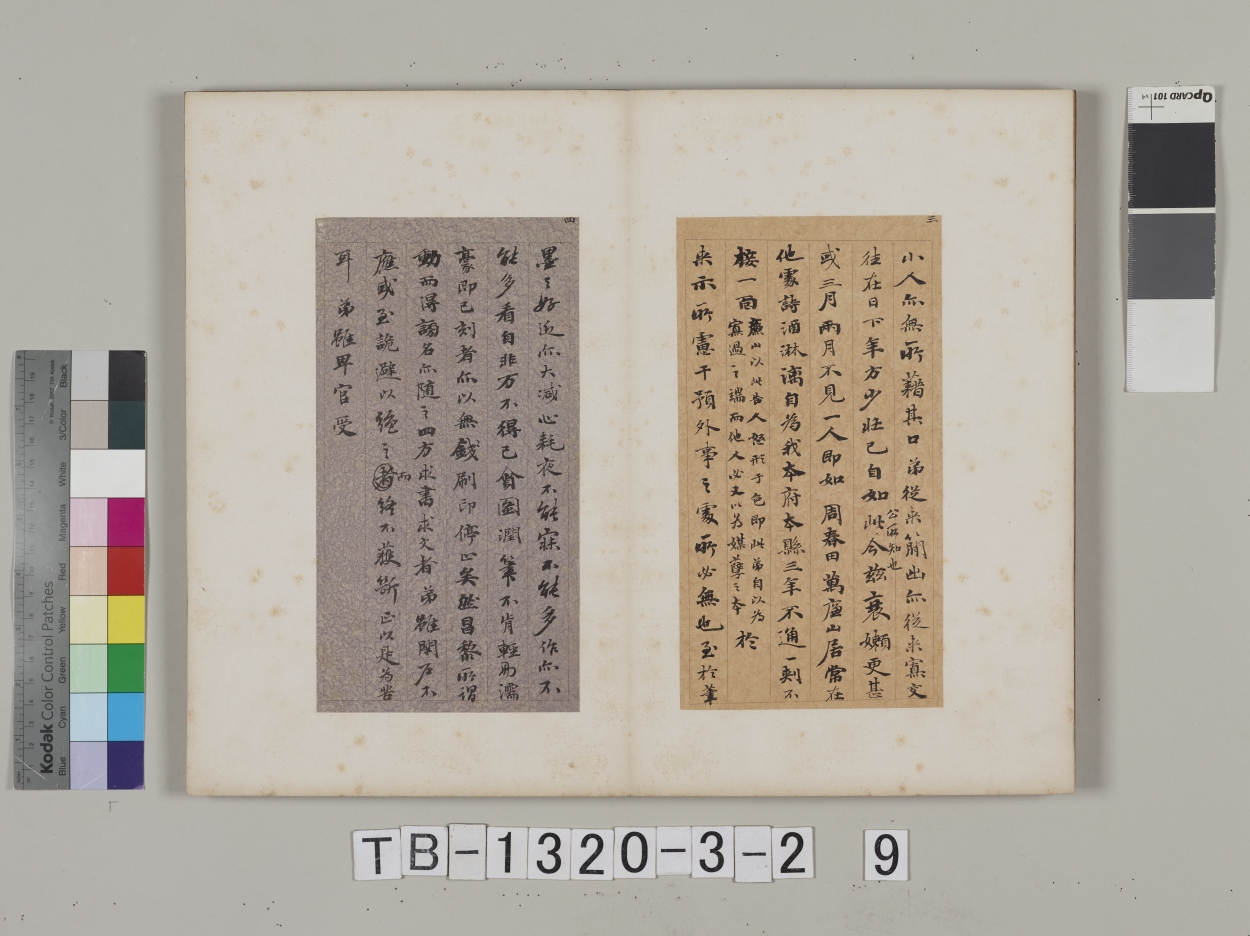 三
小人亦無所藉其口弟從来簡出亦從来寡交
往在日下年方少壮已自如此公所知也今茲衰嬾更甚
或三月兩月不見一人即如周春田萬廬山居常在
他處詩酒淋漓自為我本府本縣三年不通一刺不
接一面廬山以此告人怒形于色即此弟自以為
寡過之端而他人必又以為媒孽之本於
来示所慮干預外事之處所必無也至於筆
四
墨之好近亦大減心耗夜不能寐不能多作亦不
能多看自非万不得已會圖潤筆不肯輕易濡
豪即已刻者亦以無錢刷印停止矣然昌黎所謂
動而得謗名亦随之四方求書求文者弟雖閉户不
應或至詭避以絶之者而終不獲斷正以是為苦
耳弟雖卑官受
Kodak Color Control Patches
Blue Cyan Green Yellow Red Magenta White 3/Color Black
QPCARD 101 v4
TB-1320-3-2 9